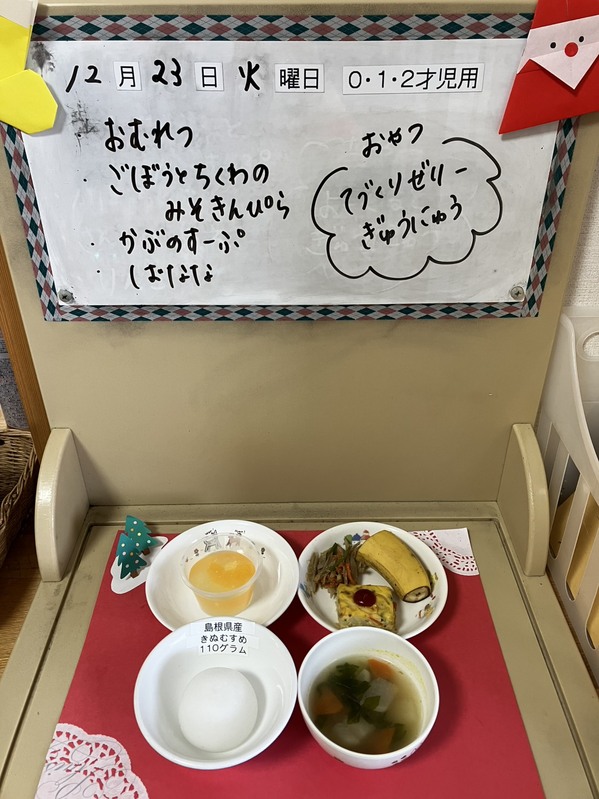 12月23日火曜日 0・1・2才児用
・おむれつ
・ごぼうとちくわの
みそきんぴら
・かぶのすーぷ
・しおななな
おやつ
てづくりゼリー
ぎゅうにゅう
島根県産
きぬむすめ
110グラム